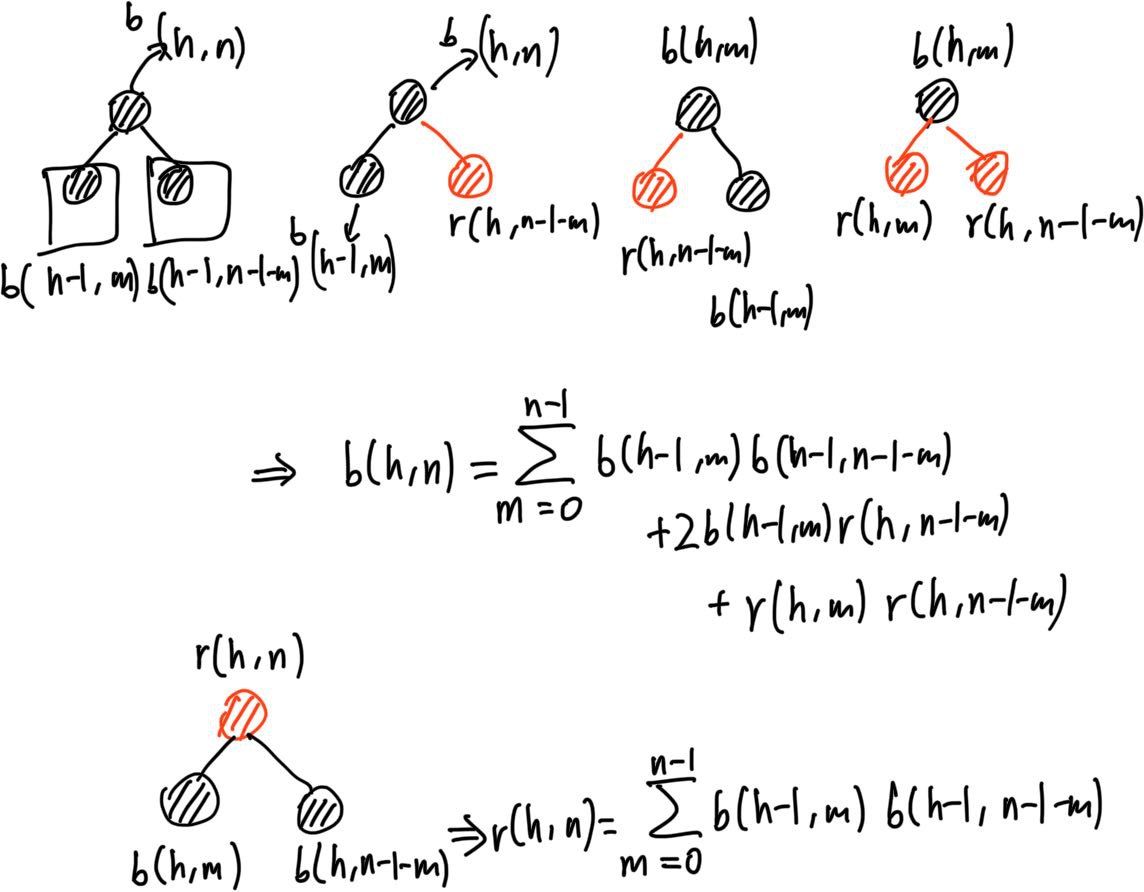 b(h,n) b(h,n) b(h,m) b(h,m)
b(h-1,m) b(h-1,n-1-m) b(h-1,m) r(h,n-1-m) r(h,n-1-m) b(h-1,m) r(h,m) r(h,n-1-m)
⇒ b(h,n) = \sum_{m=0}^{n-1} b(h-1,m) b(h-1,n-1-m)
+2b(h-1,m) r(h,n-1-m)
+ r(h,m) r(h,n-1-m)
r(h,n)
b(h,m) b(h,n-1-m) ⇒ r(h,n) = \sum_{m=0}^{n-1} b(h-1,m) b(h-1, n-1-m)